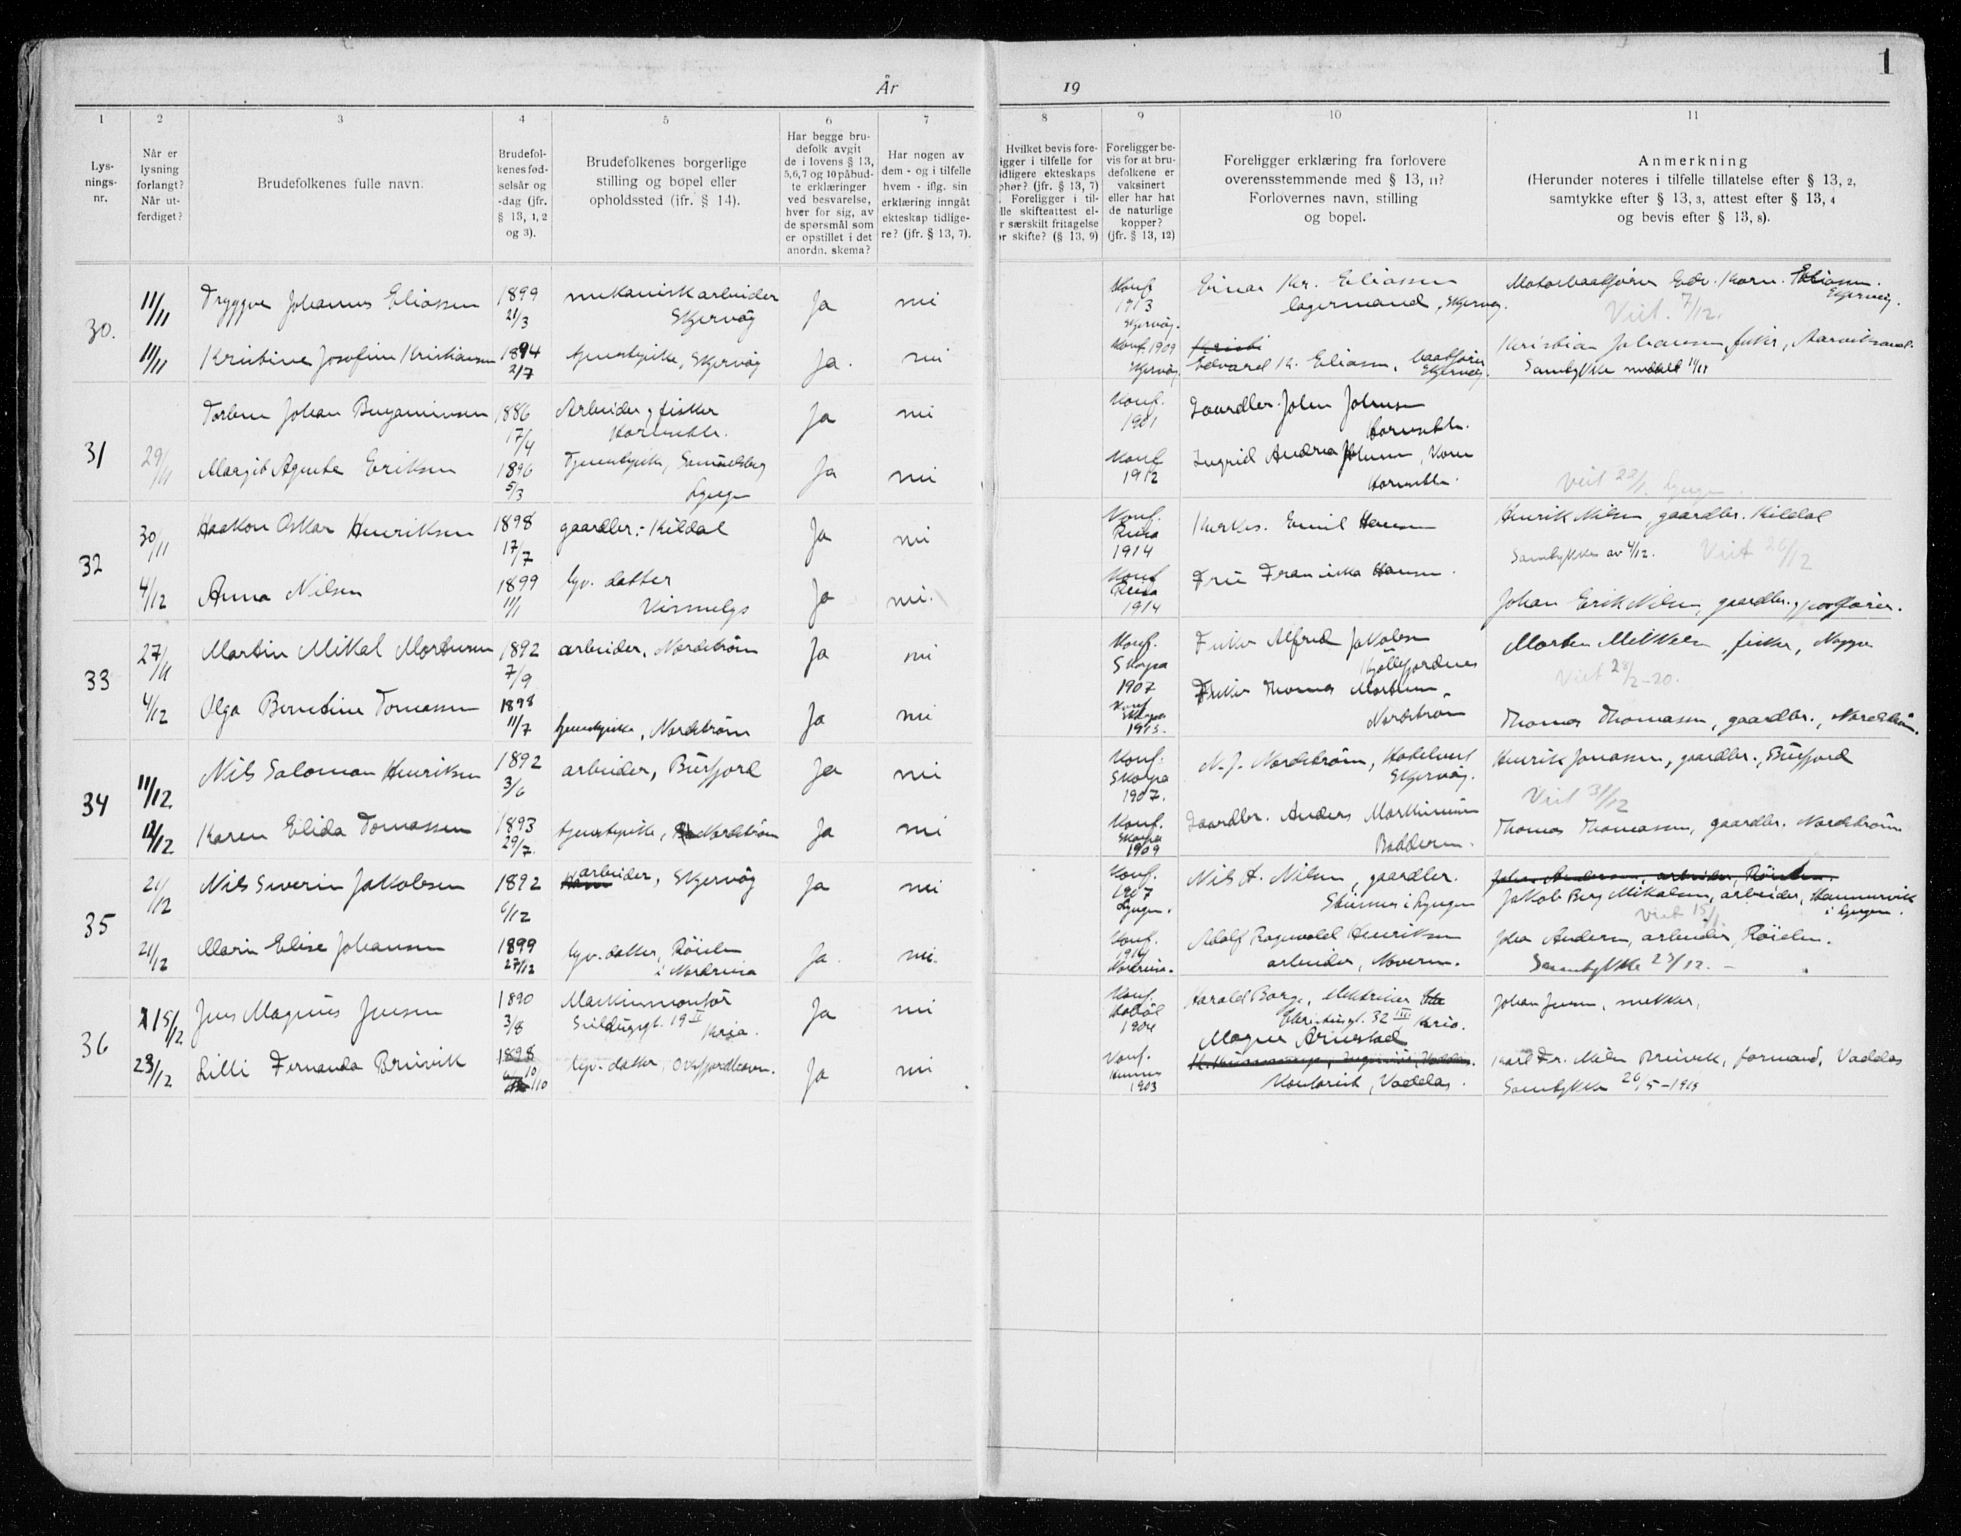 1
År
19
1 2 3 4 5 6 7 8 9 10 11
Lys-
nings-
nr.
Når er
lysning
forlangt?
Når ut-
ferdiget?
Brudefolkenes fulle navn.
Brudefol-
kenes fød-
selsår og
-dag (jfr.
§ 13, 1, 2
og 3).
Brudefolkenes borgerlige
stilling og bopel eller
opholdssted (ifr. § 14).
Har begge bru-
defolk avgit
de i lovens § 13,
5,6,7 og 10 påbud-
te erklæringer
ved besvarelse,
hver for sig, av
de spørsmål som
er opstillet i det
anordn. skema?
Har nogen av
dem - og i tilfelle
hvem - iflg. sin
erklæring inngåt
ekteskap tidlige-
re? (jfr. § 13, 7).
Hvilket bevis fore-
igger i tilfelle for
idligere ekteskaps
pher? (jfr. § 13, 7)
. Foreligger i til-
lle skifteattest el-
r særskilt fritagelse
or skifte? (§ 13, 9)
Foreligger be-
vis for at bru-
defolkene er
vaksinert
eller har hat
de naturlige
kopper?
(jfr. § 13, 12)
Foreligger erklæring fra forlovere
overensstemmende med § 13, 11?
Forlovernes navn, stilling
og bopel.
Anmerkning
(Herunder noteres i tilfelle tillatelse efter § 13, 2,
samtykke efter § 13, 3, attest efter § 13, 4
og bevis efter § 13, 8).
30.
11/11 Tryggve Johannes Eliassen 1899 21/3 mekanisk arbeider Skjervöy Ja nei
Konf. 1913 Skjervöy. Einar Kr. Eliassen lagermand, Skjervøy.
Motorbaatfører Edv. Korn. Eliassen. Skjervøy. Viet. 7/12.
11/11 Kristine Josefine Kristiansen 1894 2/7 tjenestepike, Skjervöy Ja. nei
Konf. 1909 Skjervöy. Edvard K. Eliassen, baatfører Skjervøy.
Kristian Johansen, fisker,
Samtykke meddelt 11/11
31
Johan Benjaminsen 1886 17/4 Arbeider, fisker Ja nei
Konf. 1901 Gaardbr. John Johnsen
29/11 Margit Agnete Eriksen 1896 5/3 Tjenestepike, Samuelsberg Lyngen Ja nei
Konf. 1912 Ingrid Andrea Johnsen, Kone
Viet 28/1. Lyngen
32
30/11 Haakon Oskar Henriksen 1898 17/7 gaardbr. Kildal Ja nei
Konf. Reisa 1914 Kirkes. Emil Hansen
Henrik Nilsen, gaardbr. Kildal
Samtykke av 4/12. Viet 26/12
4/12 Anna Nilsen 1899 11/1 hjv. datter Ja nei.
Konf. Reisa 1914 Fru Franciska Hansen.
Johan Erik Nilsen, gaardbr. postfører.
33
27/11 Martin Mikal Mortensen 1892 7/9 arbeider, Nordström Ja nei
Konf. Skorpa 1907 Fisker Alfred Jakobsen
Morten Mikkelsen, fisker,
Viet 28/2-20.
4/12 Olga Berntine Tomassen 1898 11/7 tjenestepike, Nordström Ja nei
Konf. Skorpa 1913. Fisker Thomas Mortensen, Nordstrøm
Thomas Thomassen, gaardbr., Nordström.
34
11/12 Nils Salomon Henriksen 1892 3/6 arbeider, Burfjord Ja nei
Konf. Skorpa 1907. N. J. Nordström, Hotelvert Skjervøy.
Henrik Jonassen, gaardbr., Burfjord
Viet 31/12
12/12 Karen Elida Tomassen 1893 29/7. tjenestepike, Nordström Ja nei
Konf. Skorpa 1909 Gaardbr. Anders Martinsen Badderen.
Thomas Thomassen, gaardbr. Nordström
35
21/12 Nils Severin Jakobsen 1892 6/12 arbeider, Skjervöy Ja nei
Konf. 1907 Lyngen. Nils A. Nilsen, gaardbr. i Lyngen
John Andersen, arbeider, Röielen.
Jakob Berg Mikalsen, arbeider, Hamnervik i Lyngen.
Viet 15/1.
21/12 Marie Elise Johansen 1899 27/12 hjv. datter, Röielen i Nordreisa Ja. nei.
Konf. 1914 Nordreisa. Adolf Ragnvald Henriksen arbeider,
John Andersen, arbeider, Röielen.
Samtykke 23/12. –
36
15/12 Jens Magnus Jensen 1890 3/8 Maskinmontör 19 III Kria. Ja nei
Konf. 1904 Harald Borge, elektriker 32 III Kria.
Johan Jensen, snekker,
23/12 Lilli Fernanda Breivik 1898 hjv. datter, Ja nei
Konf. 1903 Magne Arnestad Kontorist, Vaddas.
Karl Fr. Nilsen Breivik, formand, Vaddas
Samtykke 26/5-1919